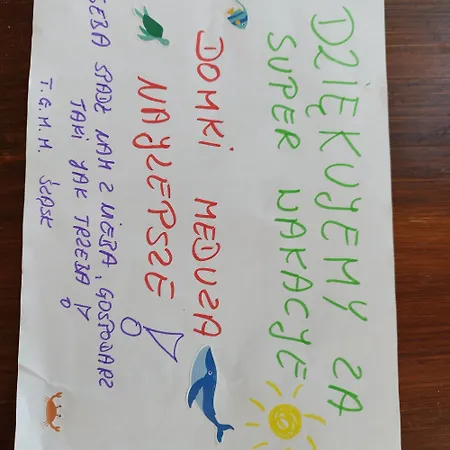 DZIĘKUJEMY ZA
SUPER WAKACJE
DOMKI MEDUZA
NAJLEPSZE!
SEBA SPADŁ NAM Z NIEBA, GOSPODARZ
TAKI JAK TRZEBA!
T. G. M. M.